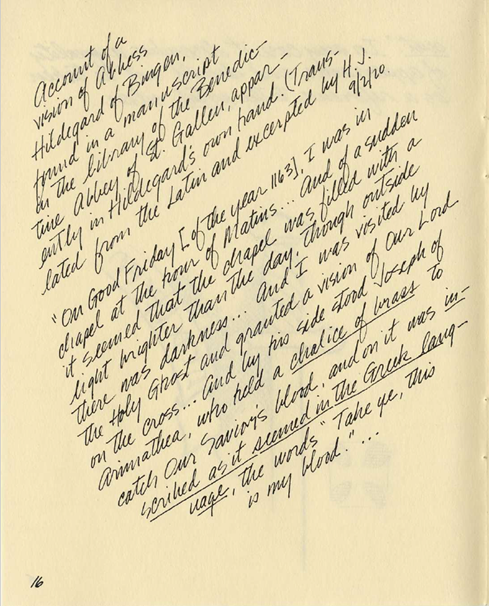 Account of a
vision of Abbess
Hildegard of Bingen,
found in a manuscript
in the library of the Benedic-
tine Abbey of St. Gallen, appar-
ently in Hildegard's own hand. (Trans-
lated from the Latin and excerpted by H. J.
9/2/20.
"On Good Friday [of the year 1163], I was in
chapel at the hour of Matins... And of a sudden
it seemed that the chapel was filled with a
light brighter than the day, though outside
there was darkness... And I was visited by
the Holy Ghost and granted a vision of Our Lord
on the cross... And by his side stood Joseph of
Arimathea, who held a chalice of brass to
catch Our Savior's blood, and on it was in-
scribed as it seemed in the Greek lang-
uage, the words "Take ye, this
is my blood."...
16